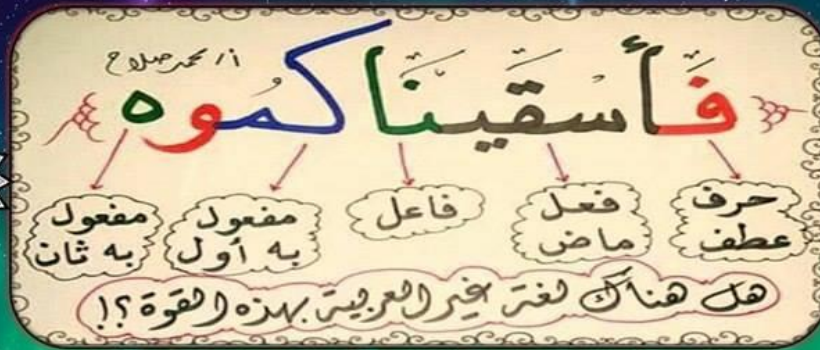 أ/ محمد صلاح
فَأَسْقَيْنَاكُمُوه
حرف عطف
فعل ماض
فاعل
مفعول به أول
مفعول به ثان
هل هناك لغة غير العربية بهذه القوة؟!